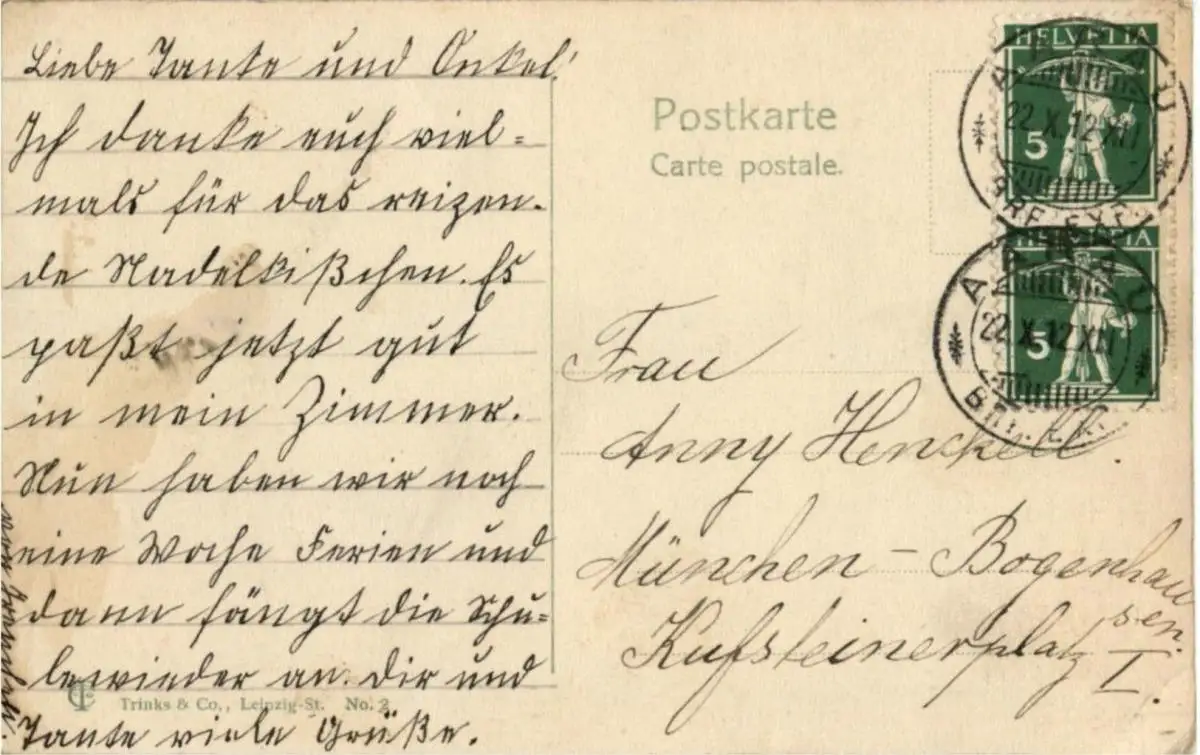 Liebe Tante und Onkel!
Ich danke euch viel=
mals für das reizen-
de Nadelkißchen. Es
paßt jetzt gut
in mein Zimmer.
Nun haben wir noch
eine Woche Ferien und
dann fängt die Schu=
le wieder an. Dir und
Tante viele Grüße.
von
Trinks & Co., Leipzig-St. No. 2
Postkarte
Carte postale.
HELVETIA
5
AARAU
22.X.12.XII
BRF. EXP.
HELVETIA
5
AARAU
22.X.12.XII
BRF. EXP.
Frau
Anny Henckell.
München - Bogenhau
sen.
Kufsteinerplatz I.